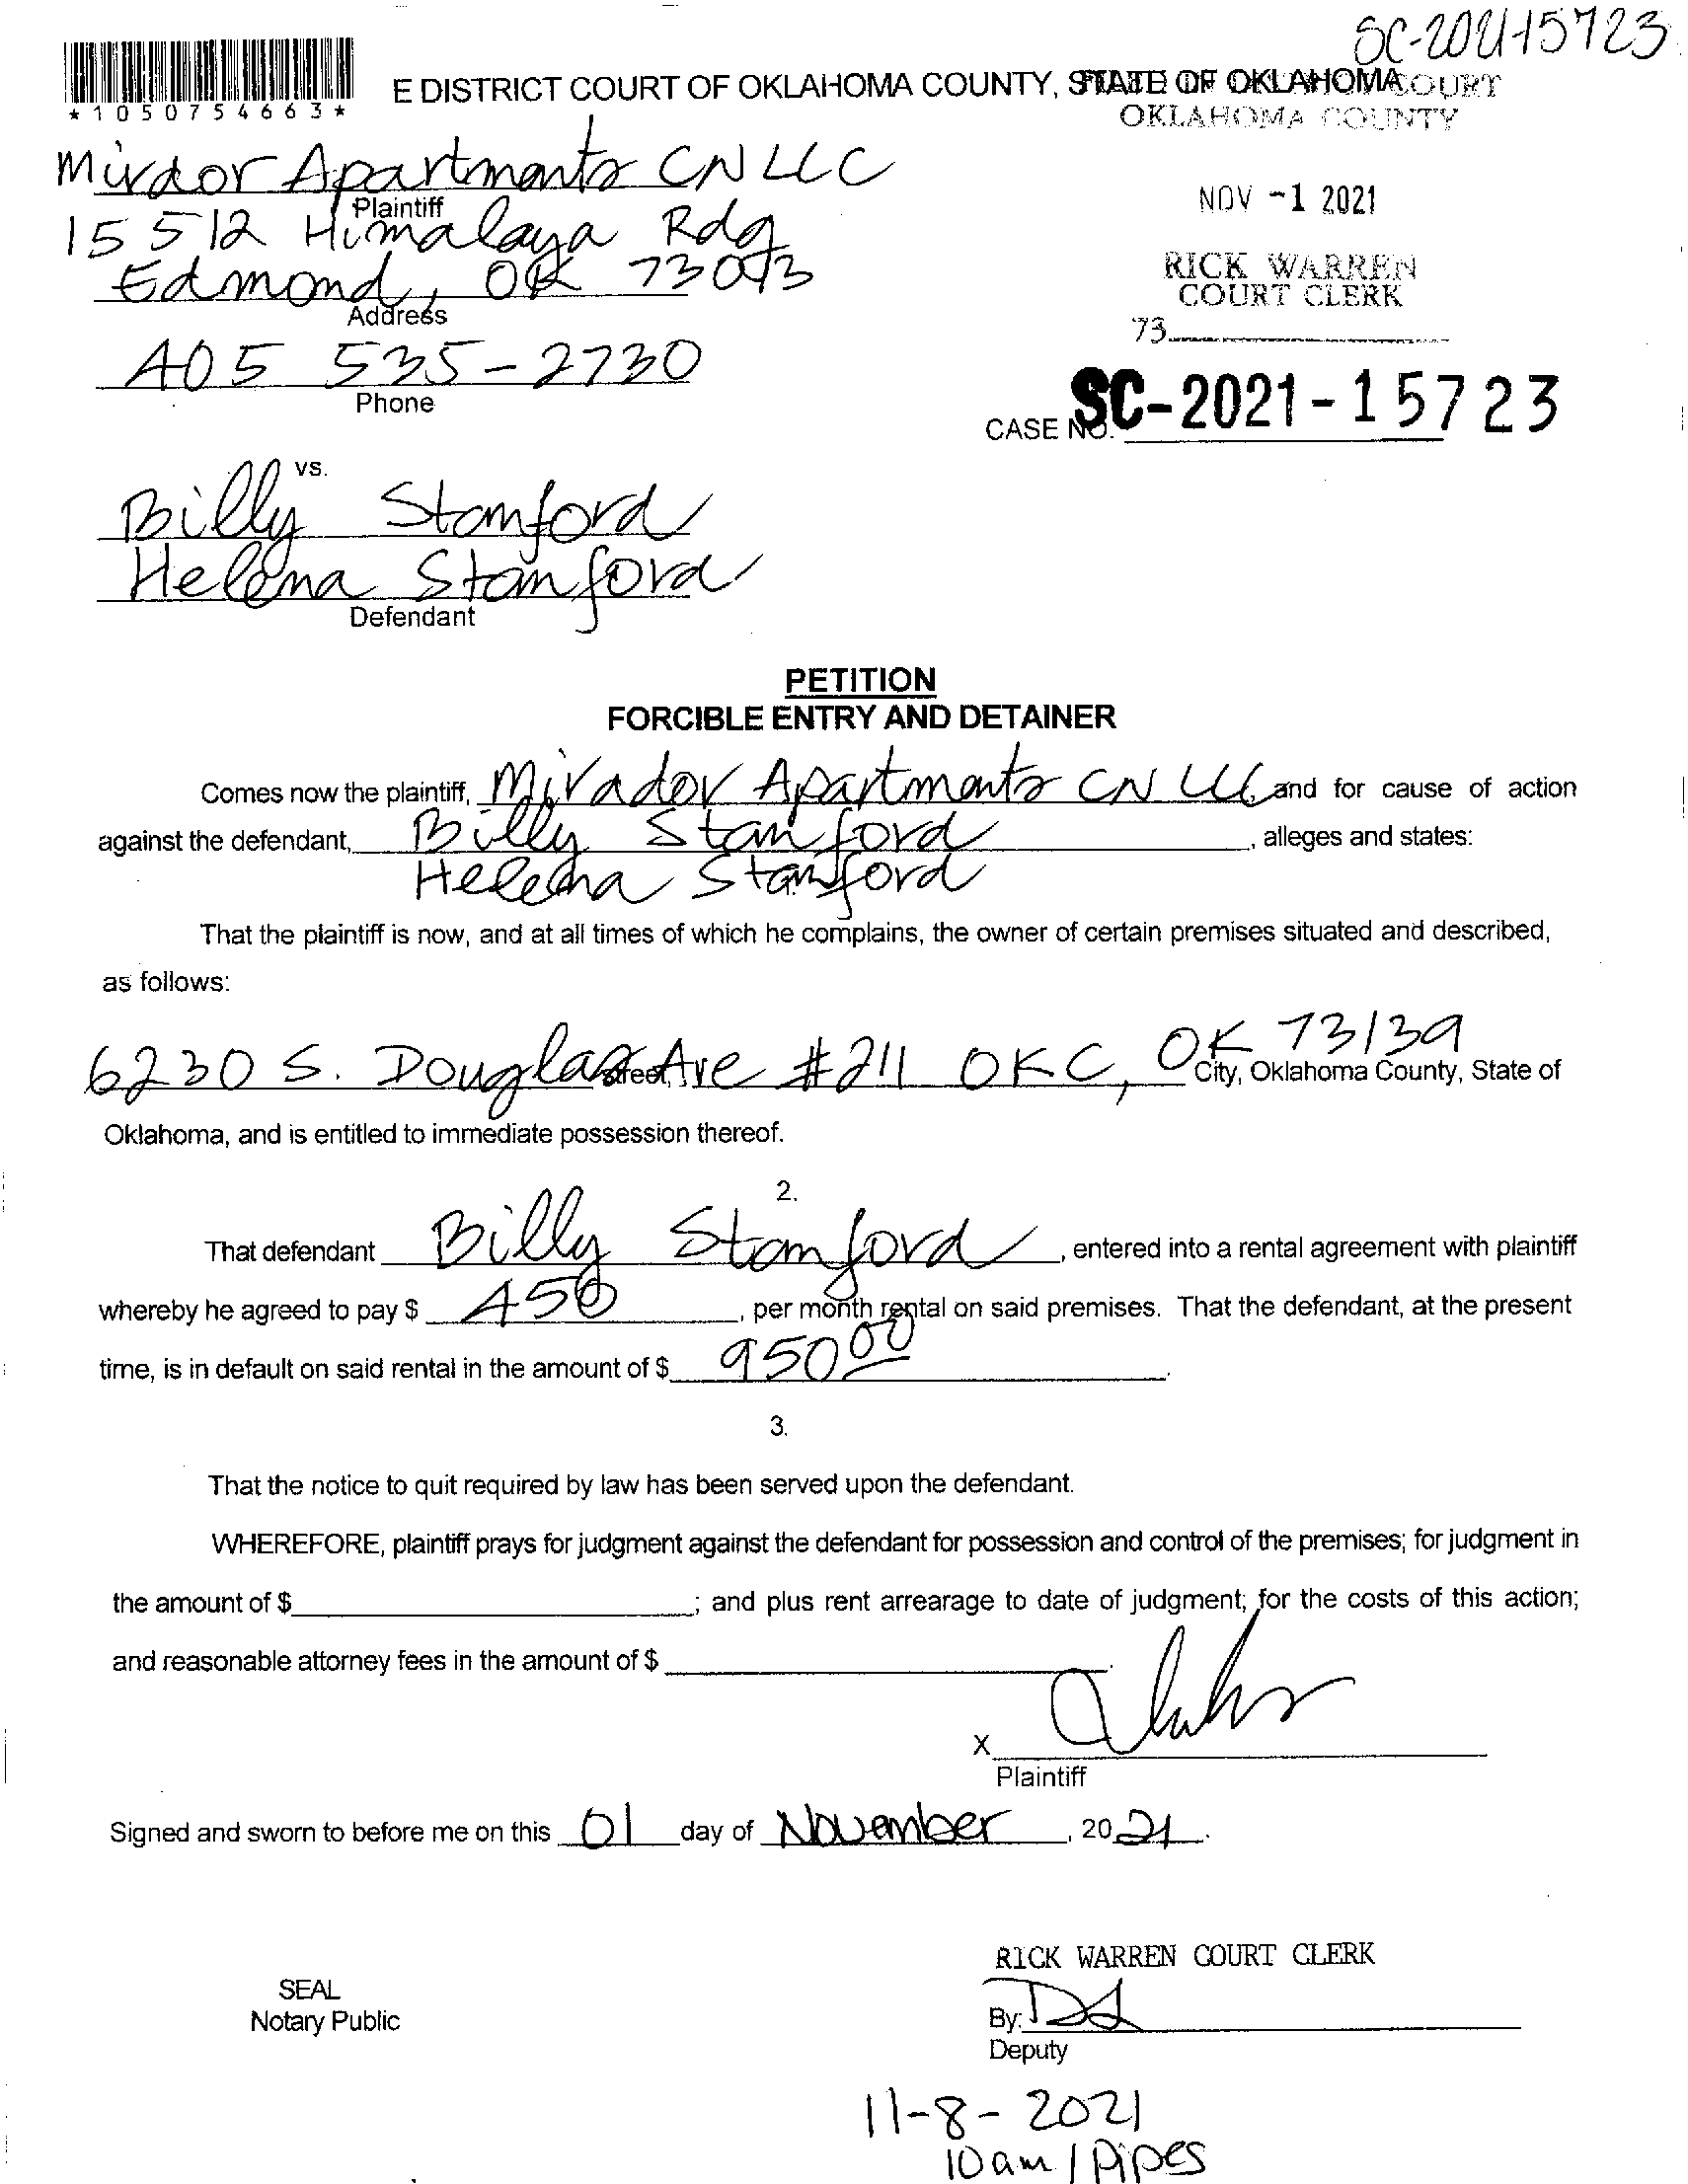 SC-2021-15723
*1050754663*
E DISTRICT COURT OF OKLAHOMA COUNTY, STATE OF OKLAHOMA
COURT
OKLAHOMA COUNTY
Mirador Apartments CN LLC
Plaintiff
NOV -1 2021
15512 Himalaya Rdg
Edmond, OK 73013
Address
RICK WARREN
COURT CLERK
73
405 535-2730
Phone
CASE NO. SC-2021-15723
vs.
Billy Stanford
Helena Stanford
Defendant
PETITION
FORCIBLE ENTRY AND DETAINER
Comes now the plaintiff, Mirador Apartments CN LLC and for cause of action
against the defendant, Billy Stanford, alleges and states:
Helena Stanford
That the plaintiff is now, and at all times of which he complains, the owner of certain premises situated and described,
as follows:
6230 S. Douglas Ave #211 OKC, OK 73139
Street, City, Oklahoma County, State of
Oklahoma, and is entitled to immediate possession thereof.
2.
That defendant Billy Stanford, entered into a rental agreement with plaintiff
whereby he agreed to pay $ 450, per month rental on said premises. That the defendant, at the present
time, is in default on said rental in the amount of $ 950 00.
3.
That the notice to quit required by law has been served upon the defendant.
WHEREFORE, plaintiff prays for judgment against the defendant for possession and control of the premises; for judgment in
the amount of $ ; and plus rent arrearage to date of judgment; for the costs of this action;
and reasonable attorney fees in the amount of $ .
X
Plaintiff
Signed and sworn to before me on this 01 day of November, 2021.
RICK WARREN COURT CLERK
SEAL
Notary Public
By: DS
Deputy
11-8-2021
10am / Pipes